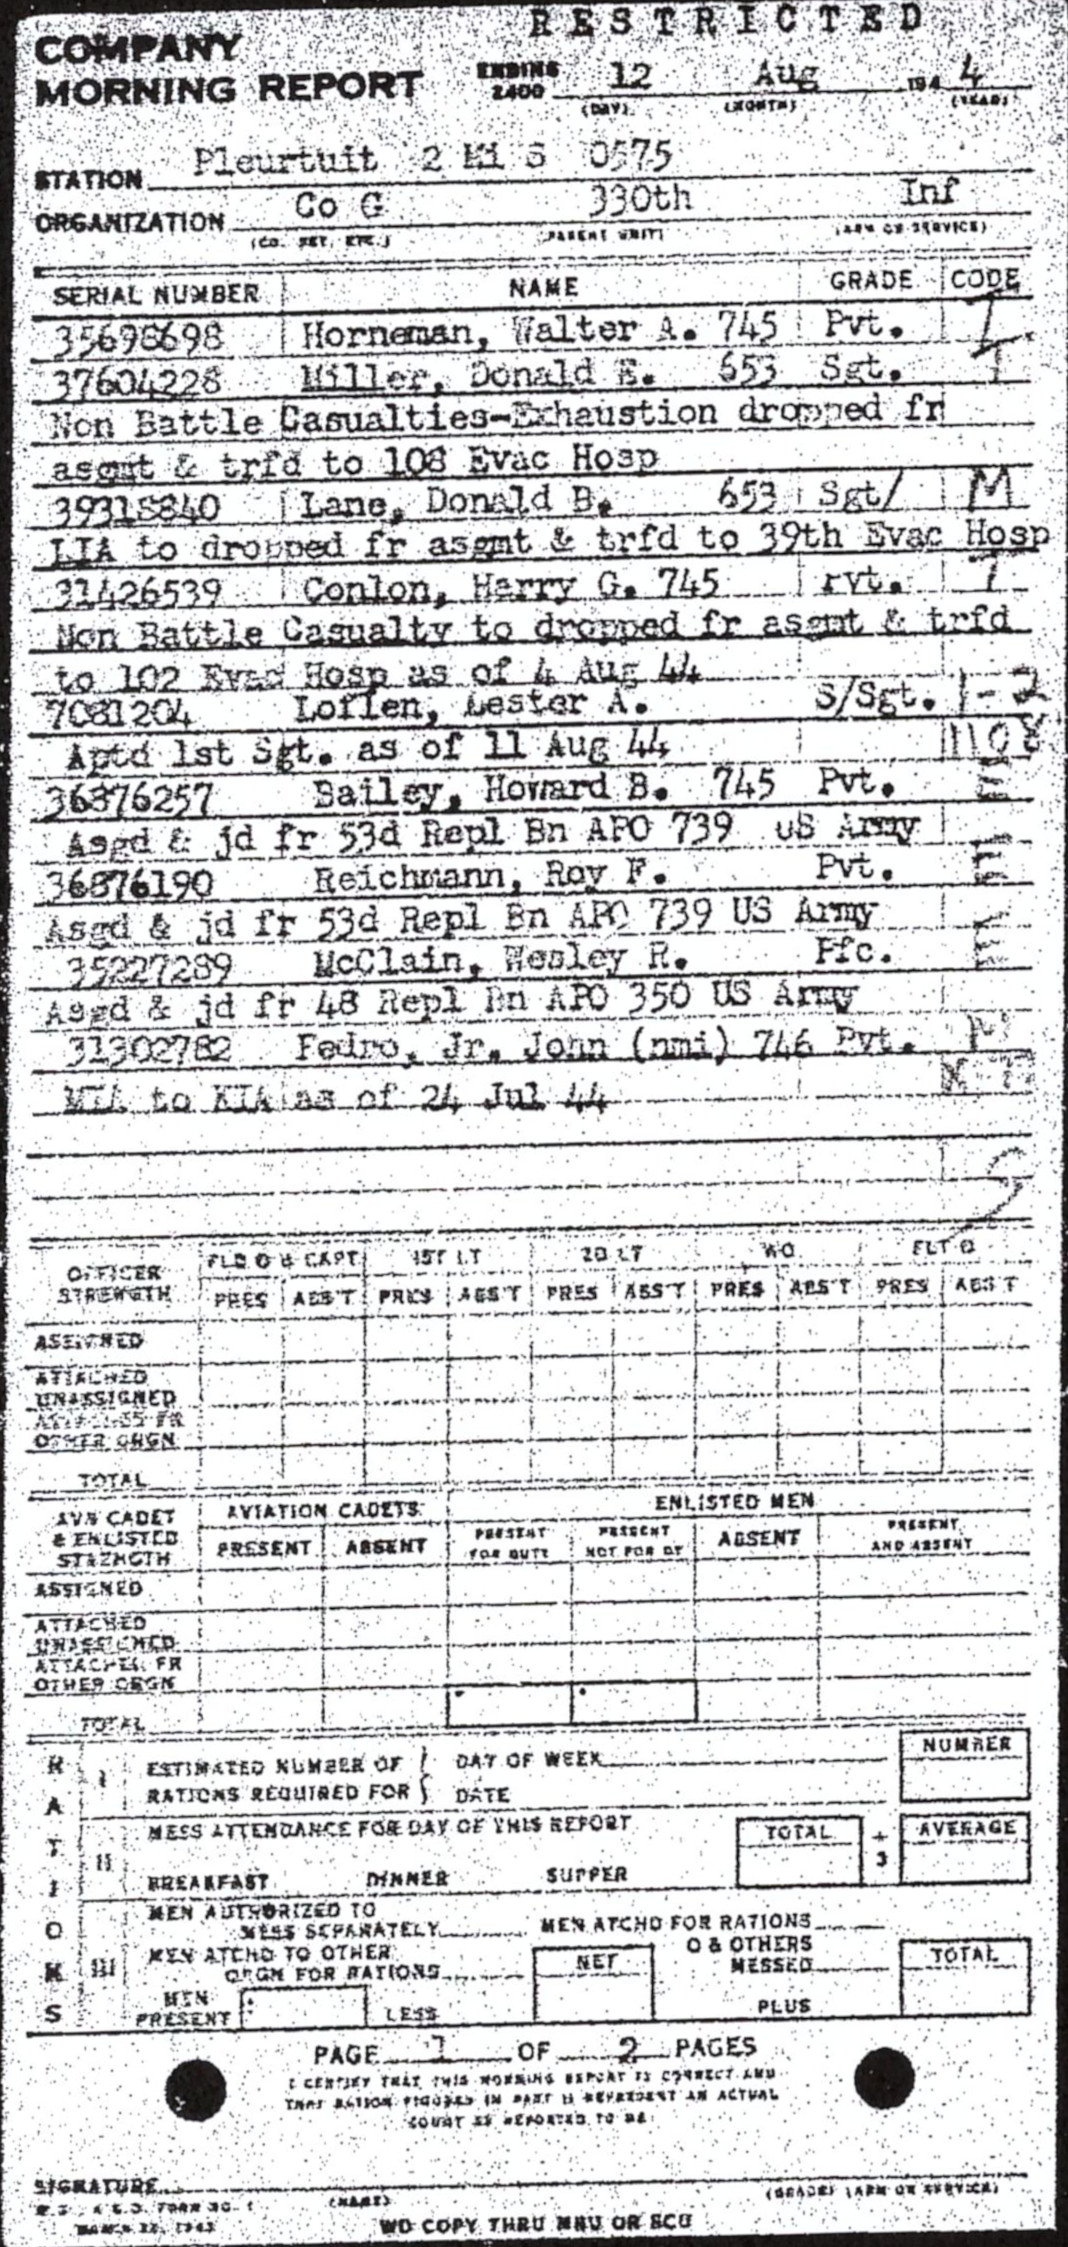 RESTRICTED
COMPANY
MORNING REPORT ENDING 2400 12 Aug 1944
(DAY) (MONTH) (YEAR)
STATION Pleurtuit 2 Mi S 0575
ORGANIZATION Co G 330th Inf
(CO. DET. ETC.) (PARENT UNIT) (ARM OR SERVICE)
SERIAL NUMBER NAME GRADE CODE
35698698 Horneman, Walter A. 745 Pvt. I
37604228 Miller, Donald E. 653 Sgt. I
Non Battle Casualties-Exhaustion dropped fr
asgmt & trfd to 108 Evac Hosp
39318840 Lane, Donald B. 653 Sgt/ M
LIA to dropped fr asgmt & trfd to 39th Evac Hosp
31426539 Conlon, Harry G. 745 Pvt.
Non Battle Casualty to dropped fr asgmt & trfd
to 102 Evac Hosp as of 4 Aug 44
7081204 Loflen, Lester A. S/Sgt. 1-2
Aptd 1st Sgt. as of 11 Aug 44 1108
36876257 Bailey, Howard B. 745 Pvt. E
Asgd & jd fr 53d Repl Bn APO 739 US Army
36876190 Reichmann, Roy F. Pvt. E
Asgd & jd fr 53d Repl Bn APO 739 US Army
35227289 McClain, Wesley R. Pfc. E
Asgd & jd fr 48 Repl Bn APO 350 US Army
31302782 Fedro, Jr. John (nmi) 746 Pvt. M
MIA to KIA as of 24 Jul 44
OFFICER STRENGTH FLD O & CAPT 1ST LT 2D LT WO FLT O
PRES ABS'T PRES ABS'T PRES ABS'T PRES ABS'T PRES ABS'T
ASSIGNED
ATTACHED
UNASSIGNED
ATTACHED FR
OTHER ORGN
TOTAL
AVN CADET & ENLISTED STRENGTH AVIATION CADETS ENLISTED MEN
PRESENT ABSENT PRESENT FOR DUTY PRESENT NOT FOR DY ABSENT PRESENT AND ABSENT
ASSIGNED
ATTACHED
UNASSIGNED
ATTACHED FR
OTHER ORGN
TOTAL
RATIONS
I ESTIMATED NUMBER OF DAY OF WEEK NUMBER
RATIONS REQUIRED FOR DATE
II MESS ATTENDANCE FOR DAY OF THIS REPORT TOTAL ÷ 3 AVERAGE
BREAKFAST DINNER SUPPER
III MEN AUTHORIZED TO
MESS SEPARATELY MEN ATCHD FOR RATIONS
MEN ATCHD TO OTHER
ORGN FOR RATIONS NET O & OTHERS MESSED TOTAL
MEN PRESENT LESS PLUS
PAGE 1 OF 2 PAGES
I CERTIFY THAT THIS MORNING REPORT IS CORRECT AND
THAT RATION FIGURES IN PART II REPRESENT AN ACTUAL
COUNT AS REPORTED TO ME
SIGNATURE
(NAME) (GRADE) (ARM OR SERVICE)
FORM NO. 1
MARCH 22, 1943
WD COPY THRU MRU OR SCU